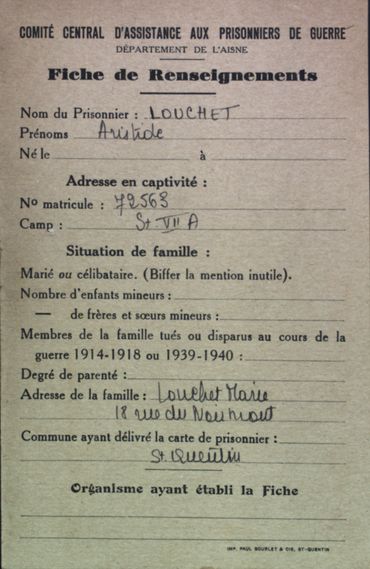 COMITÉ CENTRAL D'ASSISTANCE AUX PRISONNIERS DE GUERRE
DÉPARTEMENT DE L'AISNE
Fiche de Renseignements
Nom du Prisonnier : LOUCHET
Prénoms Aristide
Né le à
Adresse en captivité :
No matricule : 72563
Camp : St VII A
Situation de famille :
Marié ou célibataire. (Biffer la mention inutile).
Nombre d'enfants mineurs :
— de frères et sœurs mineurs :
Membres de la famille tués ou disparus au cours de la
guerre 1914-1918 ou 1939-1940 :
Degré de parenté :
Adresse de la famille : Louchet Marie
18 rue du
Commune ayant délivré la carte de prisonnier :
St. Quentin
Organisme ayant établi la Fiche
IMP. PAUL BOURLET & CIE, ST-QUENTIN